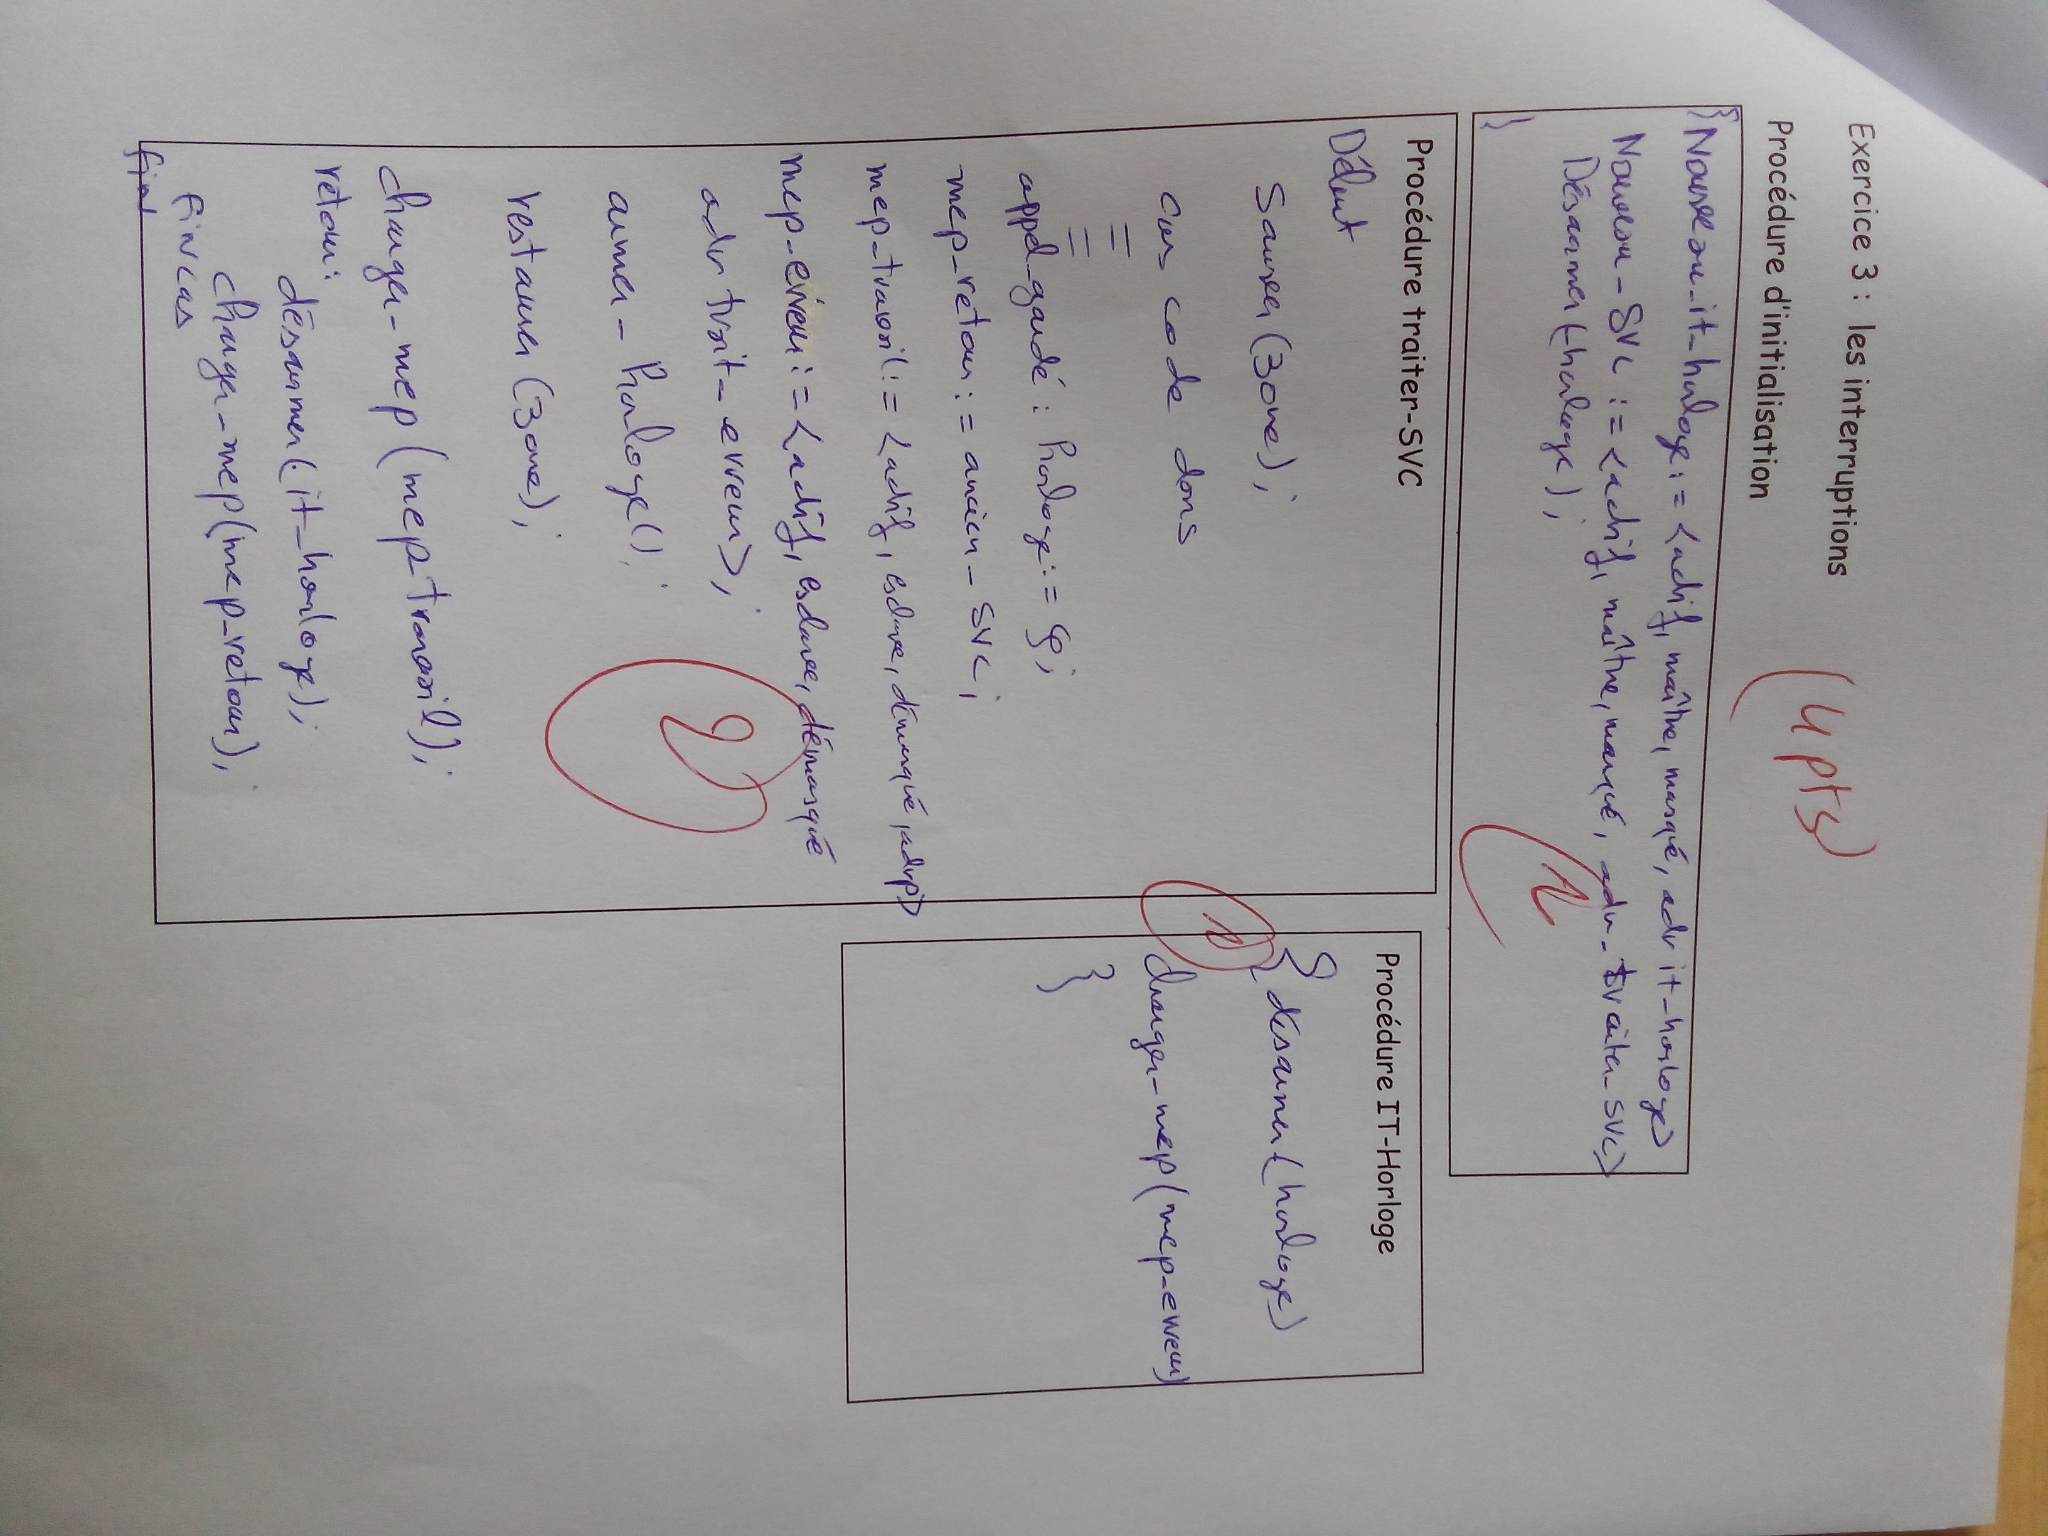 Exercice 3 : les interruptions
(4 pts)
Procédure d'initialisation
{ Nouveau_it_horloge := <actif, maître, masqué, adr it_horloge>
Nouveau_SVC := <actif, maître, masqué, adr_traiter_SVC>
Désarmer(horloge);
}
1
Procédure traiter-SVC
Début
Sauver(zone);
cas code dans
=
=
appel_gardé : horloge := q;
mep_retour := ancien_SVC;
mep_travail := <actif, esclave, démasqué, adrp>
mep_erreur := <actif, esclave, démasqué
adr trait_erreur>;
armer_horloge();
restaurer(zone);
changer_mep(mep travail);
retour:
désarmer(it_horloge);
changer_mep(mep_retour);
fincas
fin
2
Procédure IT-Horloge
{ désarmer(horloge)
changer_mep(mep_erreur)
}
1